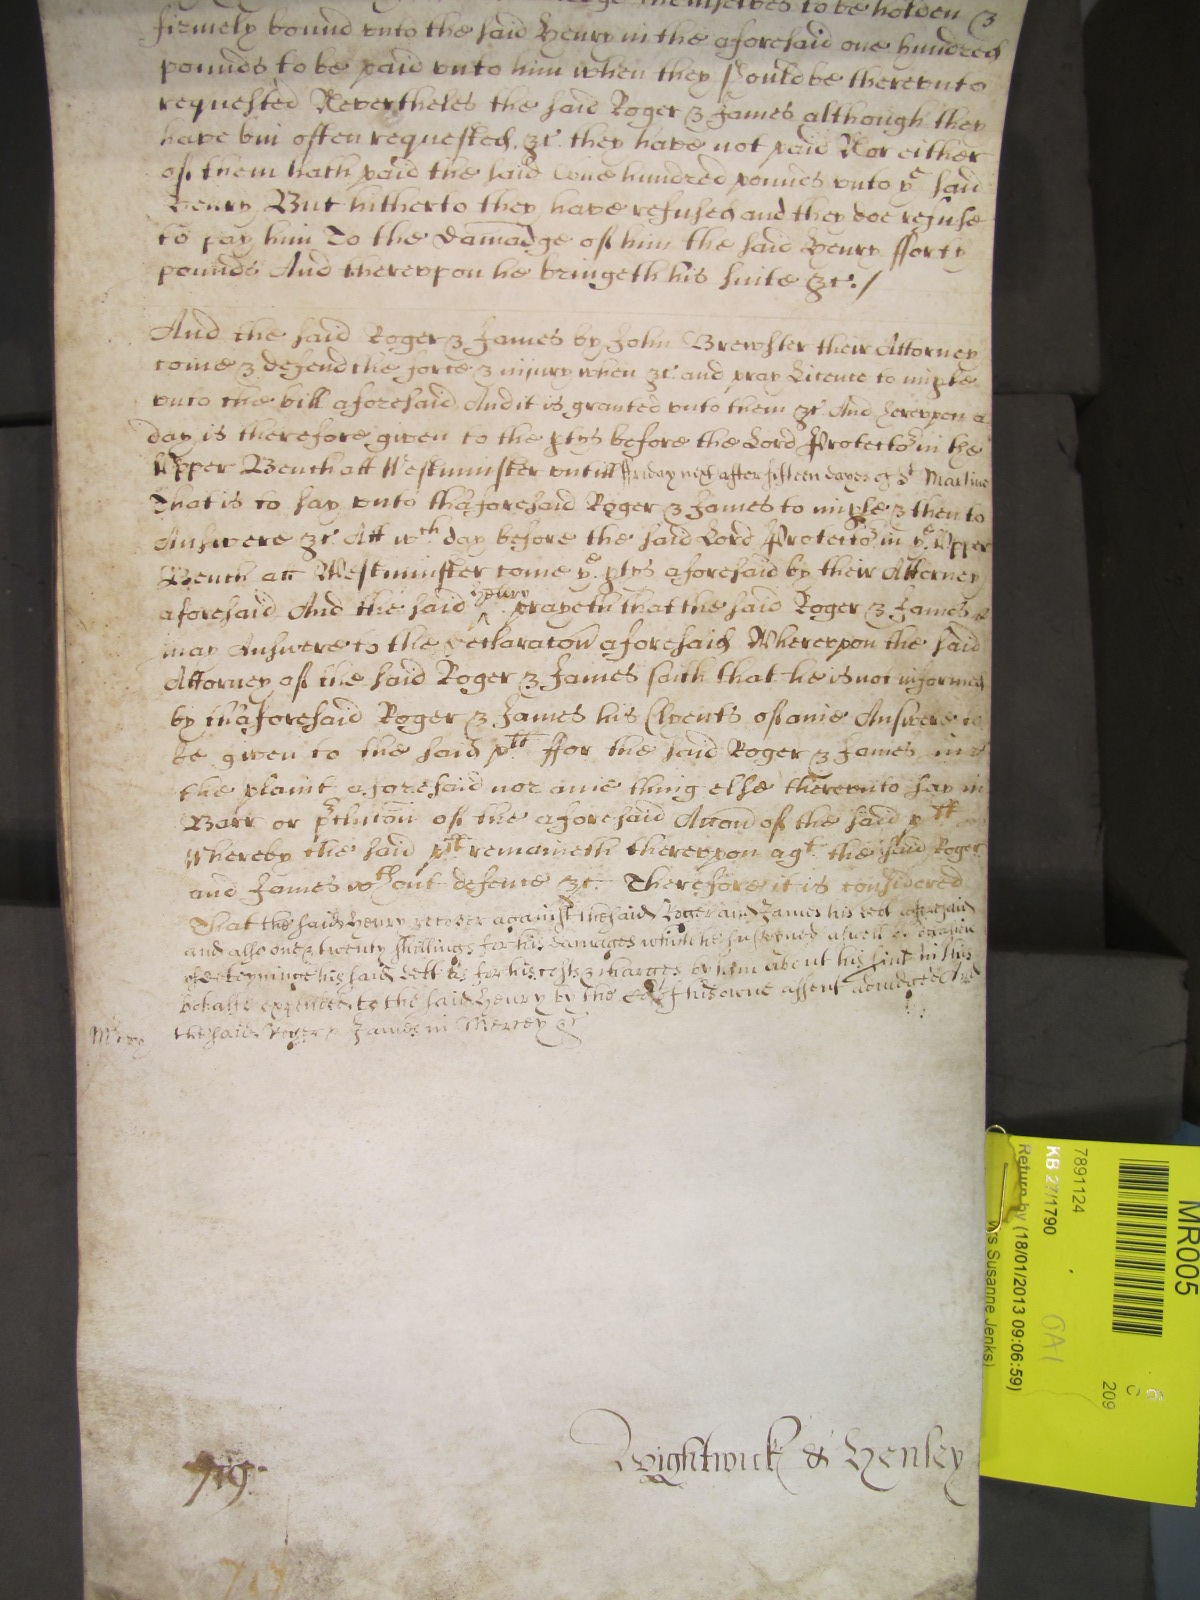 themselves to be holden &
firmely bound vnto the said Henry in the aforesaid one hundred
pounds to be paid vnto him when they should be therevnto
requested Nevertheles the said Roger & James although they
have bin often requested, &c. they have not paid Nor either
of them hath paid the said one hundred pounds vnto ye said
Henry But hitherto they have refused and they doe refuse
to pay him To the damadge of him the said Henry fforty
pounds And therevpon he bringeth his suite &c:/
And the said Roger & James by John Brewster their Attorney
come & defend the force & injury when &c. and pray Licence to imple
vnto the bill aforesaid And it is granted vnto them &c. And herevpon a
day is therefore given to the ptys before the Lord Protector in the
Vpper Bench att Westminster vntill ffriday next after fifteen dayes of St Martine
That is to say vnto thaforesaid Roger & James to imple & then to
Answere &c. Att wch day before the said Lord Protector in ye Vpper
Bench att Westminster come ye ptys aforesaid by their Attorney
aforesaid And the said Henry prayeth that the said Roger & James
may Answere to the declaracon aforesaid Wherevpon the said
Attorney of the said Roger & James saith that he is not informed
by thaforesaid Roger & James his Clyents of anie Answere to
be given to the said ptt ffor the said Roger & James in
the plaint aforesaid nor anie thing else therevnto say in
Barr or pclucon of the aforesaid Accon of the said ptt
Whereby the said ptt remaineth therevpon agt. the said Roger
and James wthout defence &c. Therefore it is considered
That the said Henry recover against the said Roger and James his debt aforesaid
and also one & twenty shillings for his damages which he susteyned aswell by occasion
of deteyninge his said debt as for his costs & charges by him about his suit in this
behalfe expended to the said Henry by the Co of his owne assent adiudged And
the said Roger & James in Mercey &c
Mrcy
719.
Wightwick & Henley
MR005
7891124
KB 27/1790
Return by (18/01/2013 09:06:59)
Mrs Susanne Jenks)
OA1
209